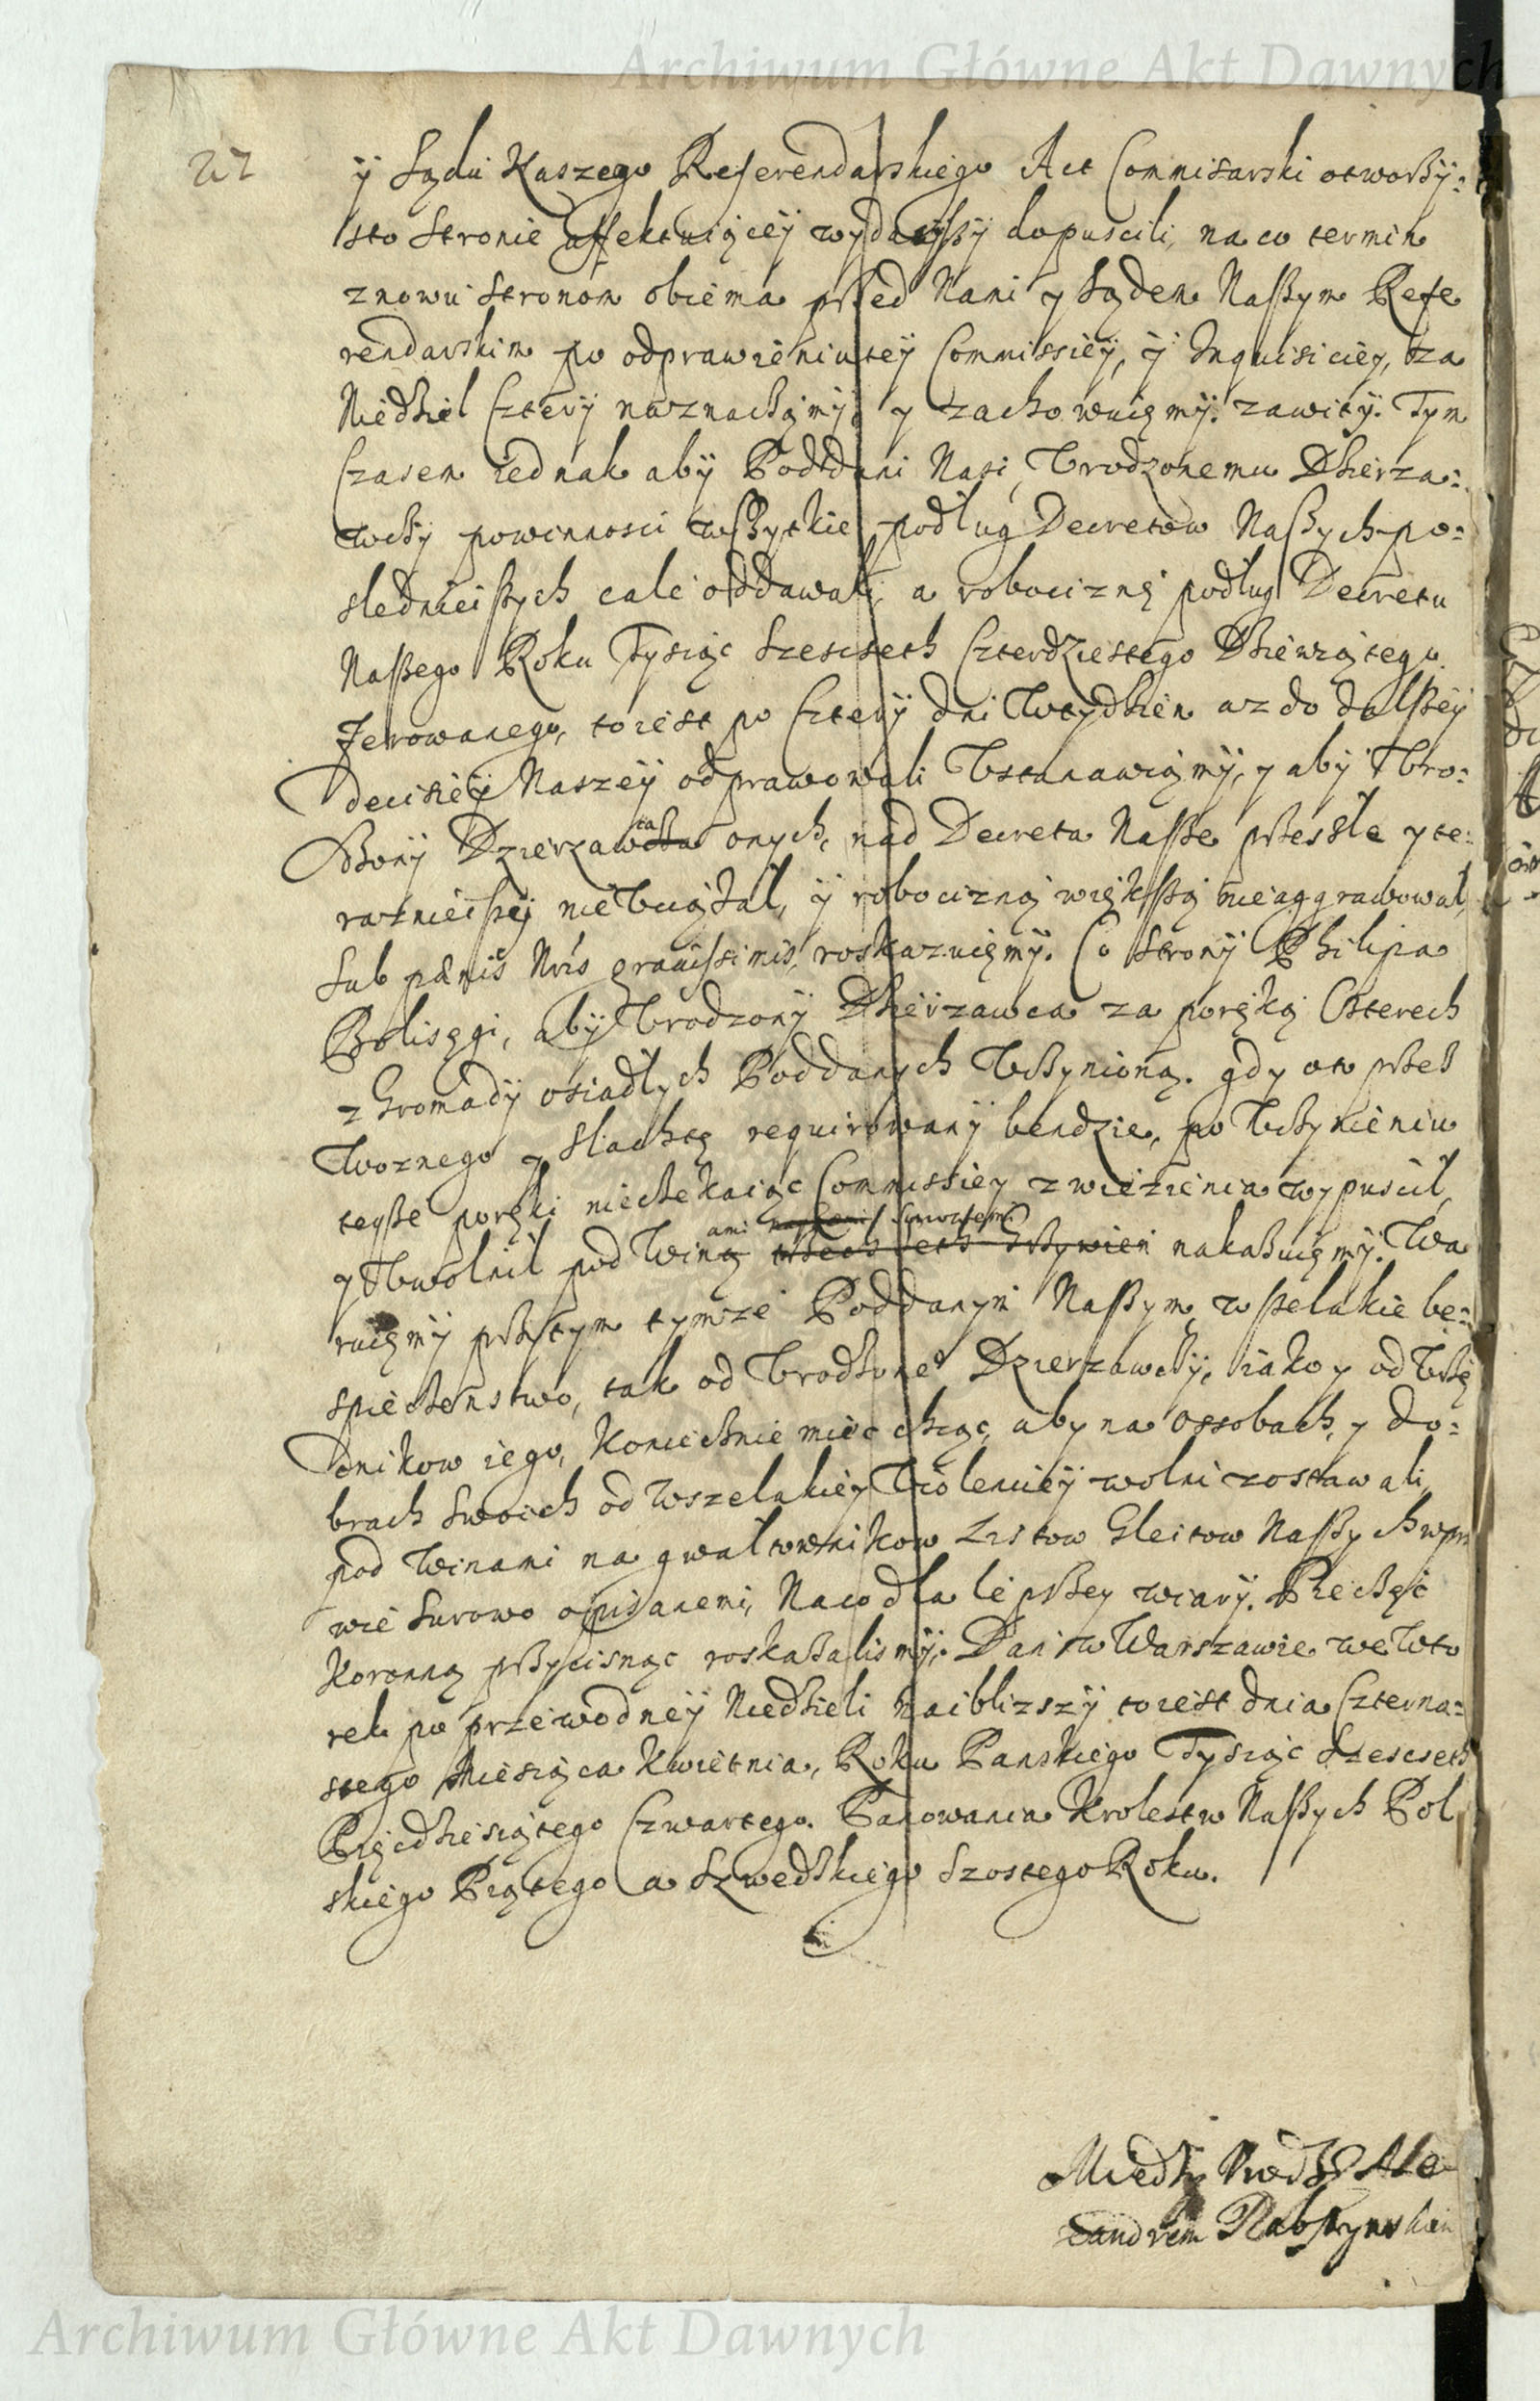 Archiwum Główne Akt Dawnych
22
ÿ Sądu Naszego Referendarskiego Act Commisarski otworßÿ:
sto Stronie affektuiącey wydaćßÿ dopuscili, na co termin
znowu Stronóm obiema przed Nami y Sądem Naßym Refe
rendarskim po odprawieniu teÿ Commissieÿ, ÿ Inquisicieÿ, za
Niedziel Czterÿ naznaczamÿ, y zachowuięmÿ. zawitÿ. Tym
Czasem iednak abÿ Poddani Nasi, Vrodzonemu Dzierza:
wcßÿ powinnosci wßytkie podług Decretow Naßych po:
sledniejßych cale oddawali, a robociznę podług Decretu
Naßego Roku Tysiąc Szescseth Czterdziestego Dziewiątego
ferowanego, to iest po Czterÿ dni Wtydzień az do dalßeÿ
decisieÿ Naszeÿ odprawowali Vstanawiamÿ, y abÿ Vro:
dzonÿ Dzierzawca onych, nad Decreta Naße przeszłe y te:
raznieißeÿ nie Vciążał, ÿ robocizną więkßą nie aggrawował,
Sub pænis Nris grauissimis, roskazuięmÿ. Co Stronÿ Philipa
Bolisęgi, abÿ Vrodzonÿ Dzierzawca za poręką Czterech
z Gromadÿ osiadłych Poddanych Vczynioną. gdy oto przez
Woznego y Slachtę requirowanÿ bendzie, po Vczynieniu
teyße poręki nieczekaiąc Commissiey z wiezienia wypuscił,
ami Surowemi
y Vwolnił pod Winą trzech seth Grzywien nakazuięmÿ. Wa
ruięmÿ przytym tymze Poddanym Naßym, wßelakie be:
spieczenstwo, tak od Vrodzone° Dzierzawcÿ, iako y od Vrzę
dnikow iego, koniecznie miec chcąc, aby na Ossobach, y do:
brach Swoich od wszelakiey Violencieÿ wolni zostawali,
pod Winami na gwałtownikow Listow Gleitow Naßych wpra
wie Surowo opisanemi, Na co dla lepßey wiarÿ. Pieczęć
Koronną przycisnąc roskazalismÿ. Dan w Warszawie we Wto
rek po przewodneÿ Niedzieli naiblizszÿ to iest dnia Czterna:
stego Miesiąca Kwietnia, Roku Panskiego Tysiąc Szescseth
Pięcdziesiątego Czwartego. Panowania Krolestw Naßych Pol
skiego Piątego a Szwedskiego Szostego Roku.
Miedzy Ale
xandrem Rabsztynskim
Archiwum Główne Akt Dawnych